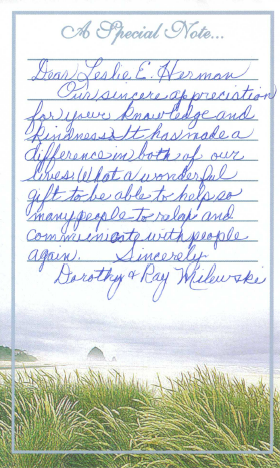 A Special Note...
Dear Leslie E. Harman
Our sincere appreciation
for your knowledge and
kindness. It has made a
difference in both of our
lives. What a wonderful
gift to be able to help so
many people to relax and
communicate with people
again. Sincerely
Dorothy & Ray Milewski